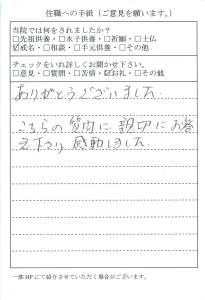 住職への手紙（ご意見を願います。）
当院では何をされましたか？
□先祖供養・□水子供養・□祈願・□土仏
☑戒名・□相談・□手元供養・□その他
チェックをいれ詳しくお聞かせ下さい。
□意見・□質問・□苦情・☑お礼・□その他
ありがとうございました
こちらの質問に親切にお答
え下さり、感動しました
一部HPにて紹介させていただく場合がございます。